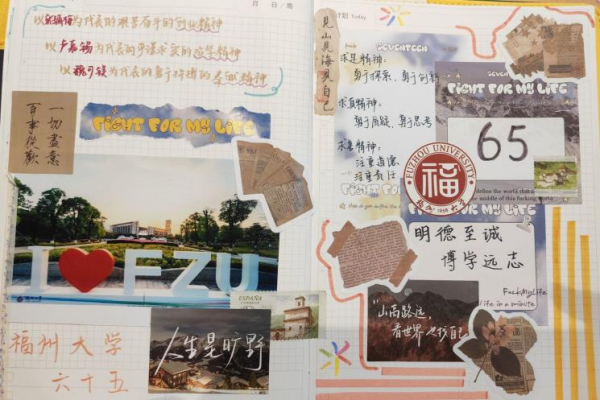 以张孤梅为代表的艰苦奋斗的创业精神
以卢嘉锡为代表的严谨求实的治学精神
以魏可镁为代表的勇于拼搏的奉献精神
一切尽意
百事从欢
FIGHT FOR MY LIFE
I FZU
ESPAÑA
福州大学
六十五
人生是旷野
见山见海见自己
计划 Today
SEVENTEEN
求是精神:
勇于探索、勇于创新
求真精神:
勇于质疑、勇于思考
求善精神:
注重道德
注重责任
FIGHT FOR MY LIFE
65
FUZHOU UNIVERSITY
福
1958
define the world that
middle of this fucking world
FIGHT FOR MY LIFE
明德至诚
博学远志
FuckMyLife
Life in a minute
"山高路远,
看世界 也找自己